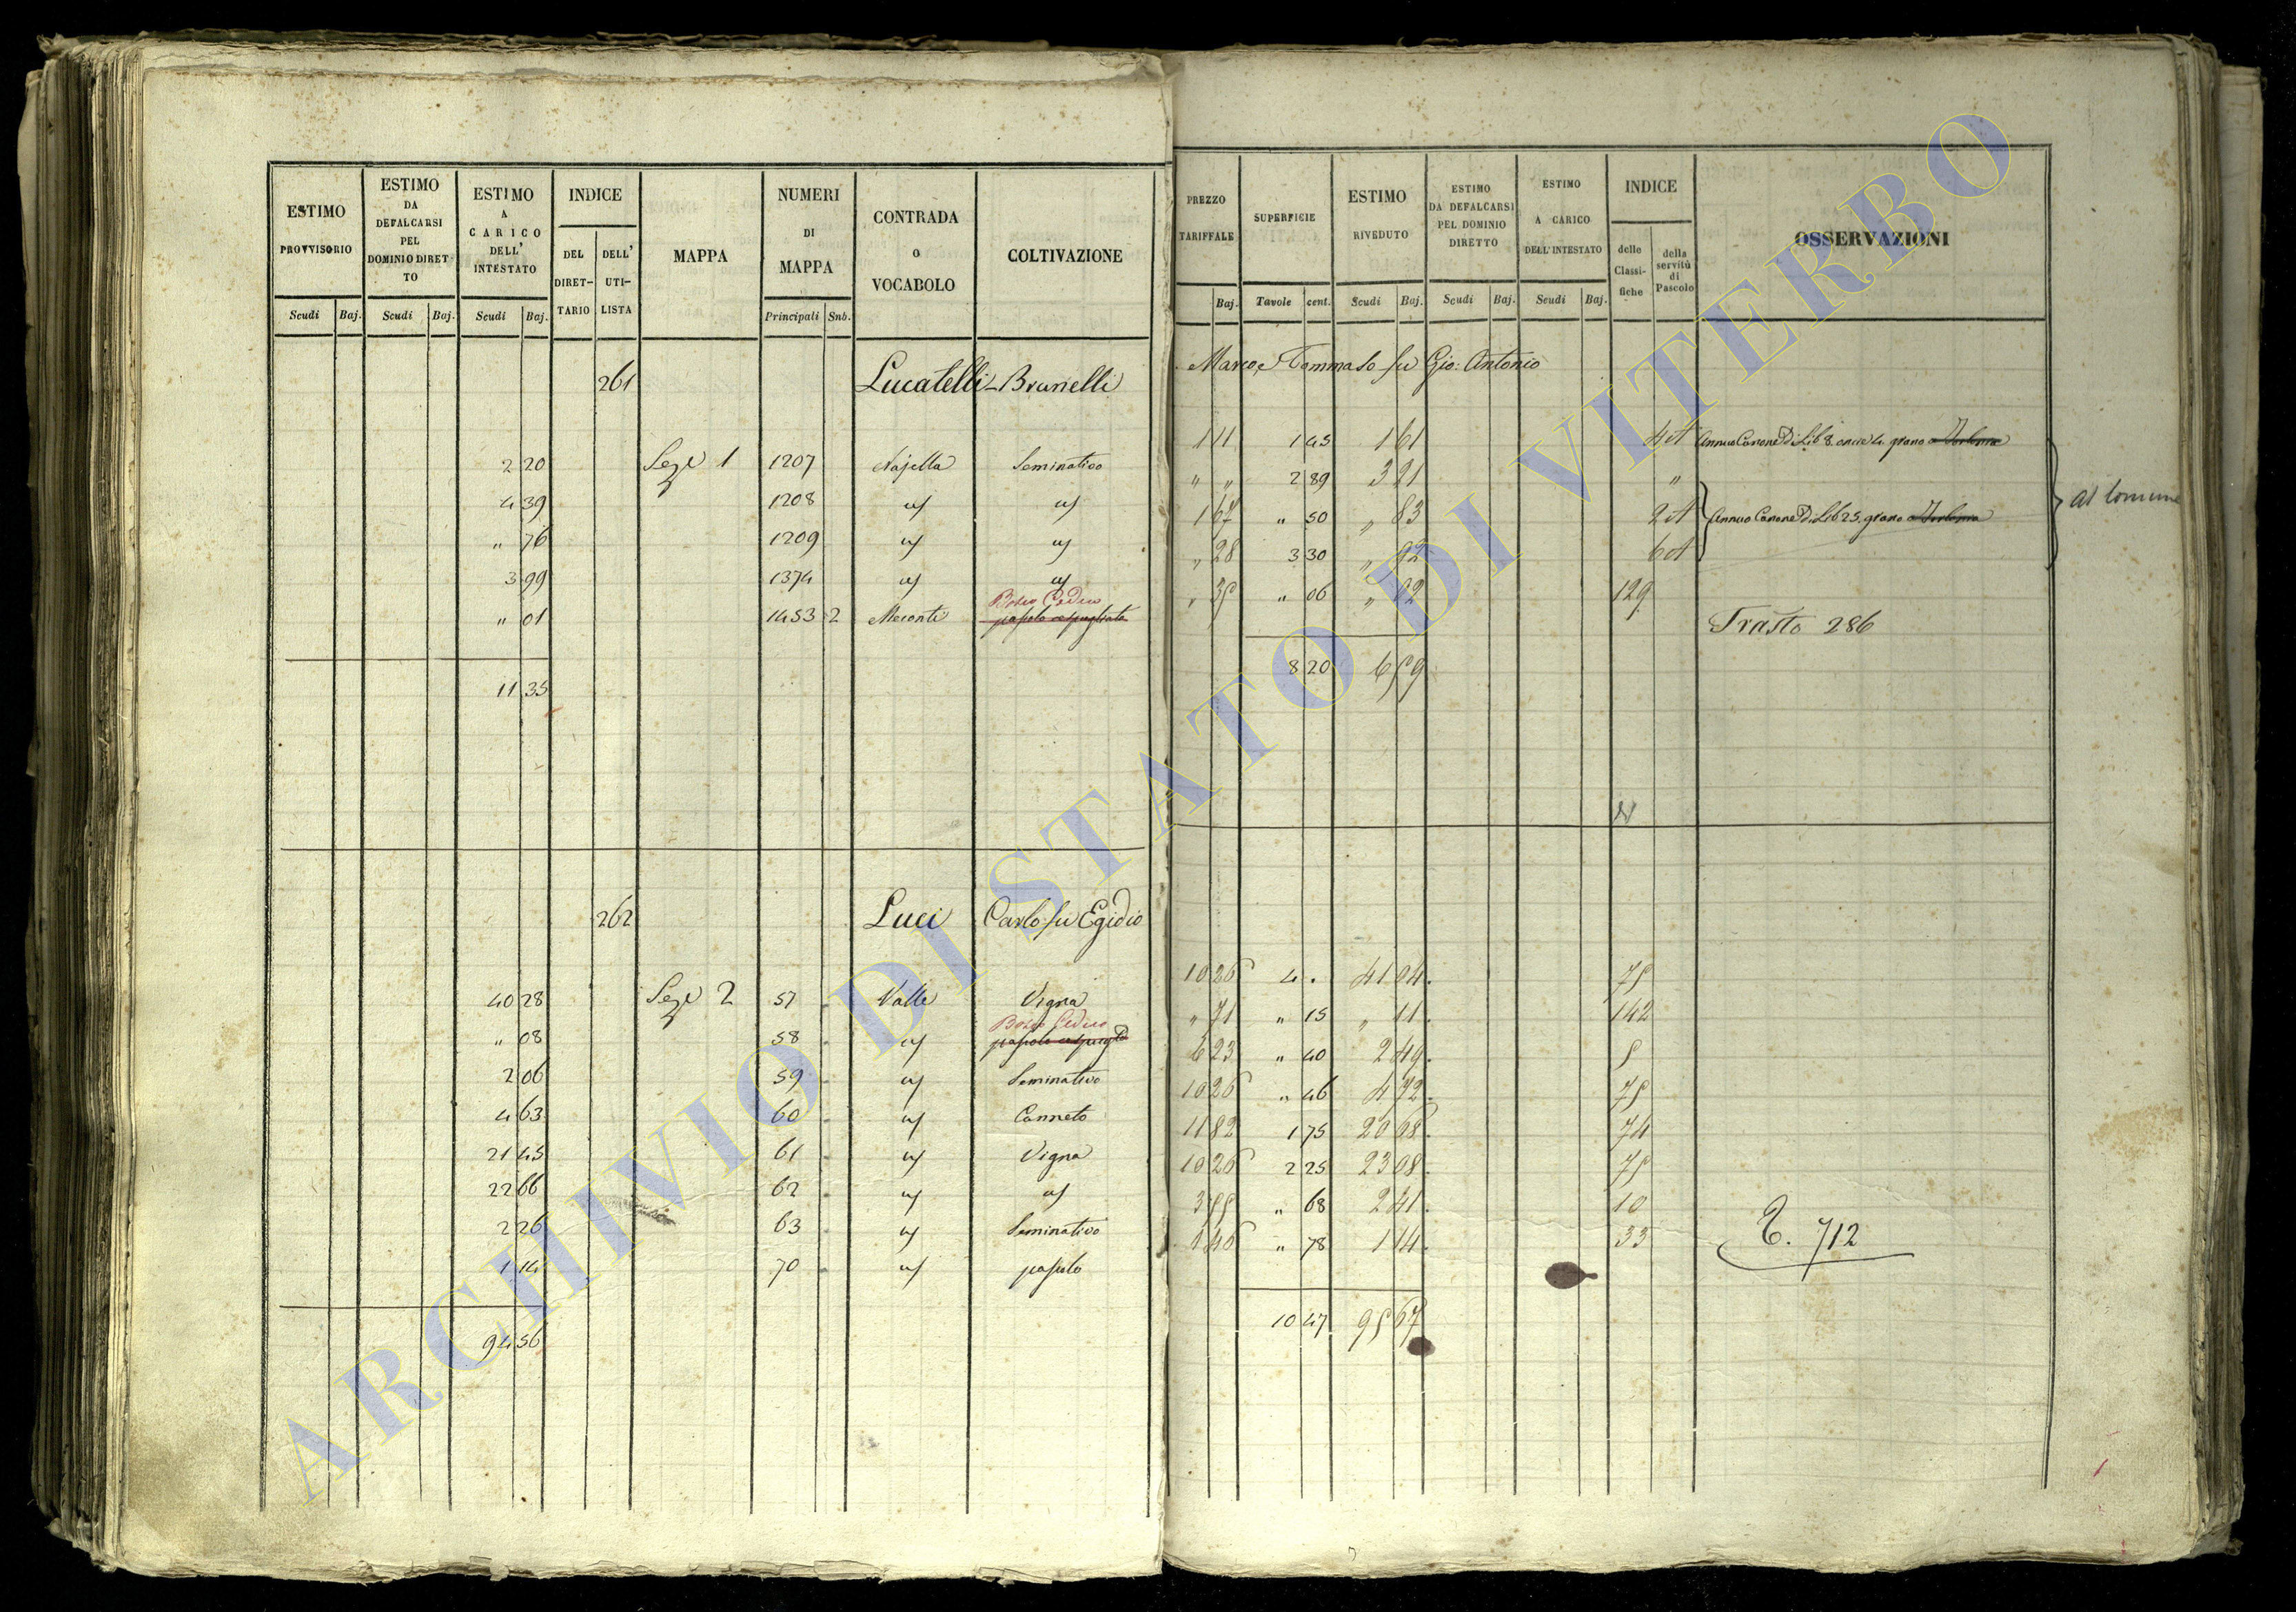 ESTIMO PROVVISORIO
Scudi Baj.
ESTIMO DA DEFALCARSI PEL DOMINIO DIRET- TO
Scudi Baj.
ESTIMO A CARICO DELL' INTESTATO
Scudi Baj.
INDICE
DEL DIRET- TARIO
DELL' UTI- LISTA
MAPPA
NUMERI DI MAPPA
Principali Snb.
CONTRADA O VOCABOLO
COLTIVAZIONE
PREZZO TARIFFALE
Baj.
SUPERFICIE
Tavole cent.
ESTIMO RIVEDUTO
Scudi Baj.
ESTIMO DA DEFALCARSI PEL DOMINIO DIRETTO
Scudi Baj.
ESTIMO A CARICO DELL'INTESTATO
Scudi Baj.
INDICE
delle Classi- fiche
della servitù di Pascolo
OSSERVAZIONI
261 Lucatelli-Brunelli Marco, e Tommaso fu Gio: Antonio
2 20 Seze 1 1207 Najella Seminativo 1 11 1 45 1 61 4 A Annuo Canone Di Lib 8. oncie 4. grano
4 39 1208 " " 2 89 3 21 "
" 76 1209 1 67 " 50 " 83 2 A Annuo Canone Di Lib 25. grano
3 99 1374 " 28 3 30 " 92 6 A
al Comune
" 01 1453 2 Meconte Bosco Ceduo " 35 " 06 " 02 129
Trasto 286
11 35 8 20 6 59
262 Luci Carlo fu Egidio
40 28 Seze 2 57 Valle Vigna 10 26 4 . 41 04 75
" 08 58 Bosco Ceduo " 71 " 15 " 11 142
2 06 59 Seminativo 6 23 " 40 2 49 5
4 63 60 Canneto 10 26 " 46 4 72 75
21 45 61 Vigna 11 82 1 75 20 68 74
22 66 62 10 26 2 25 23 08 75
2 26 63 Seminativo 3 55 " 68 2 41 10
1 14 70 pascolo 1 46 " 78 1 14 33
T. 712
94 56 10 47 95 67
ARCHIVIO DI STATO DI VITERBO